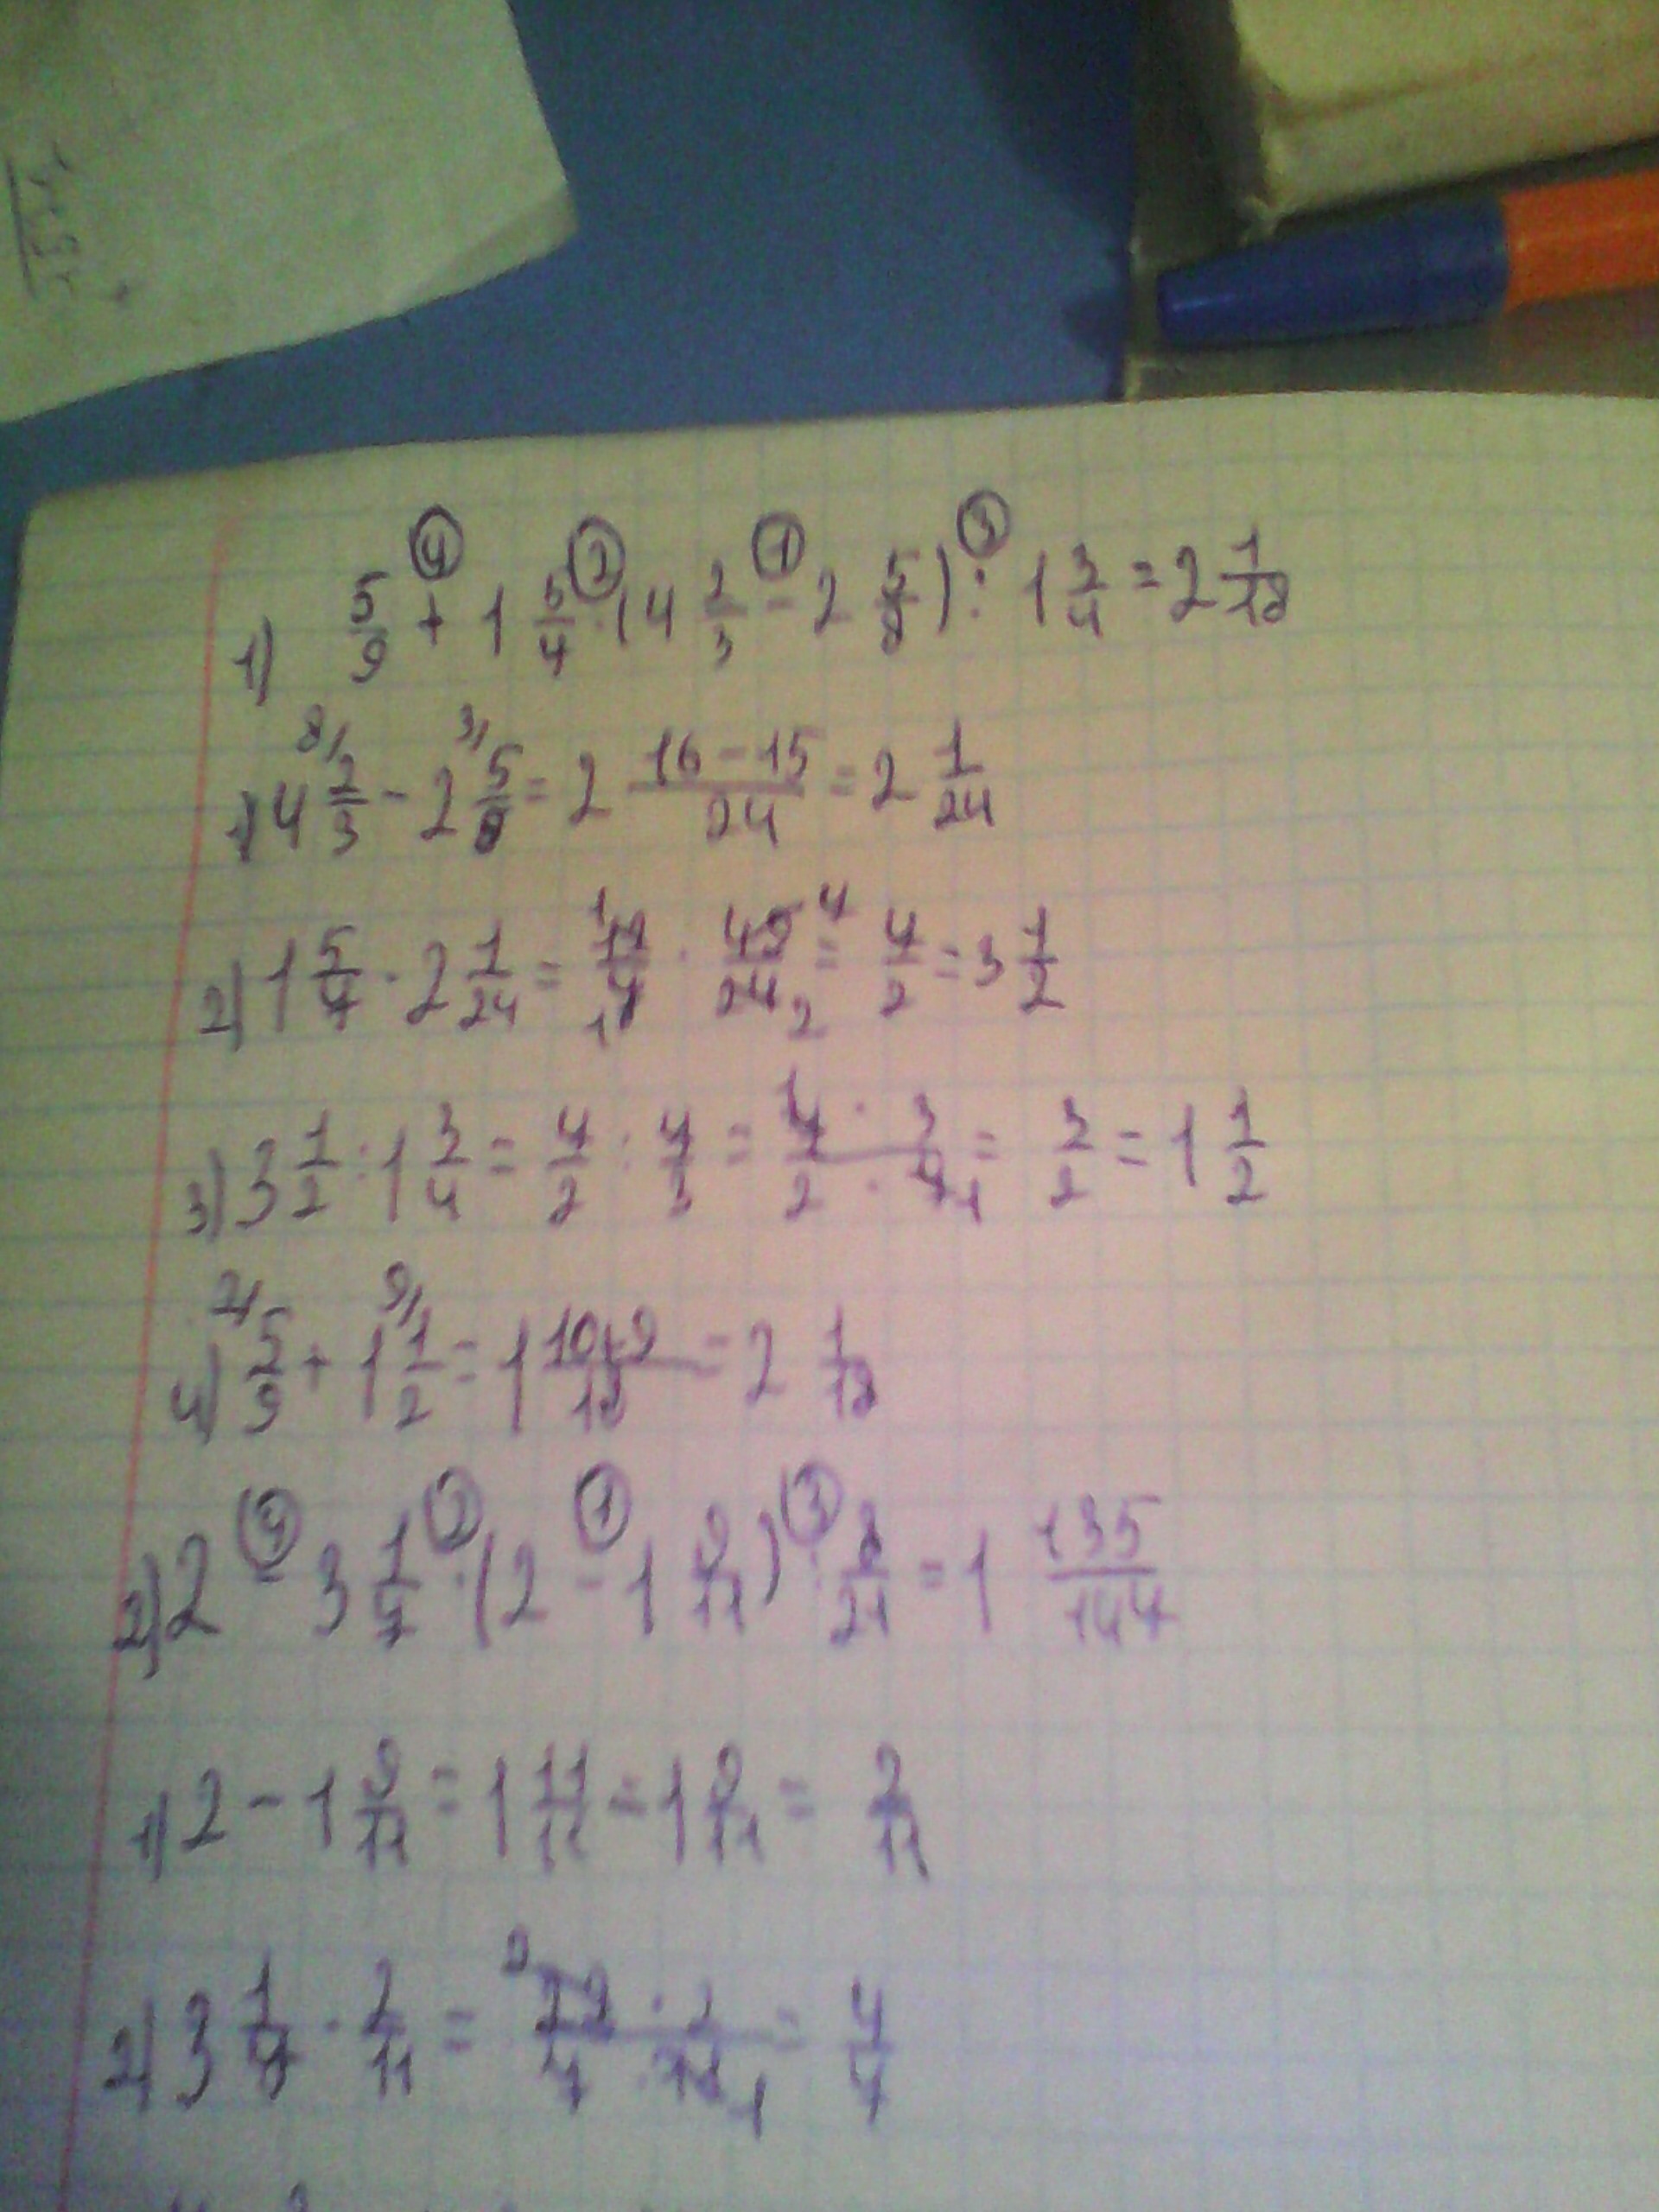 1) 5/9 + 1 5/7 · (4 2/3 - 2 5/8) : 1 3/4 = 2 1/18
1) 4 2/3 - 2 5/8 = 2 16-15/24 = 2 1/24
2) 1 5/7 · 2 1/24 = 12/7 · 49/24 = 7/2 = 3 1/2
3) 3 1/2 : 1 3/4 = 7/2 : 7/3 = 7 · 3/2 · 7 = 3/2 = 1 1/2
4) 5/9 + 1 1/2 = 1 10+9/18 = 2 1/18
2) 2 - 3 1/7 · (2 - 1 9/11) : 8/21 = 1 135/147
1) 2 - 1 9/11 = 1 11/11 - 1 9/11 = 2/11
2) 3 1/7 · 2/11 = 22 · 2/7 · 11 = 4/7